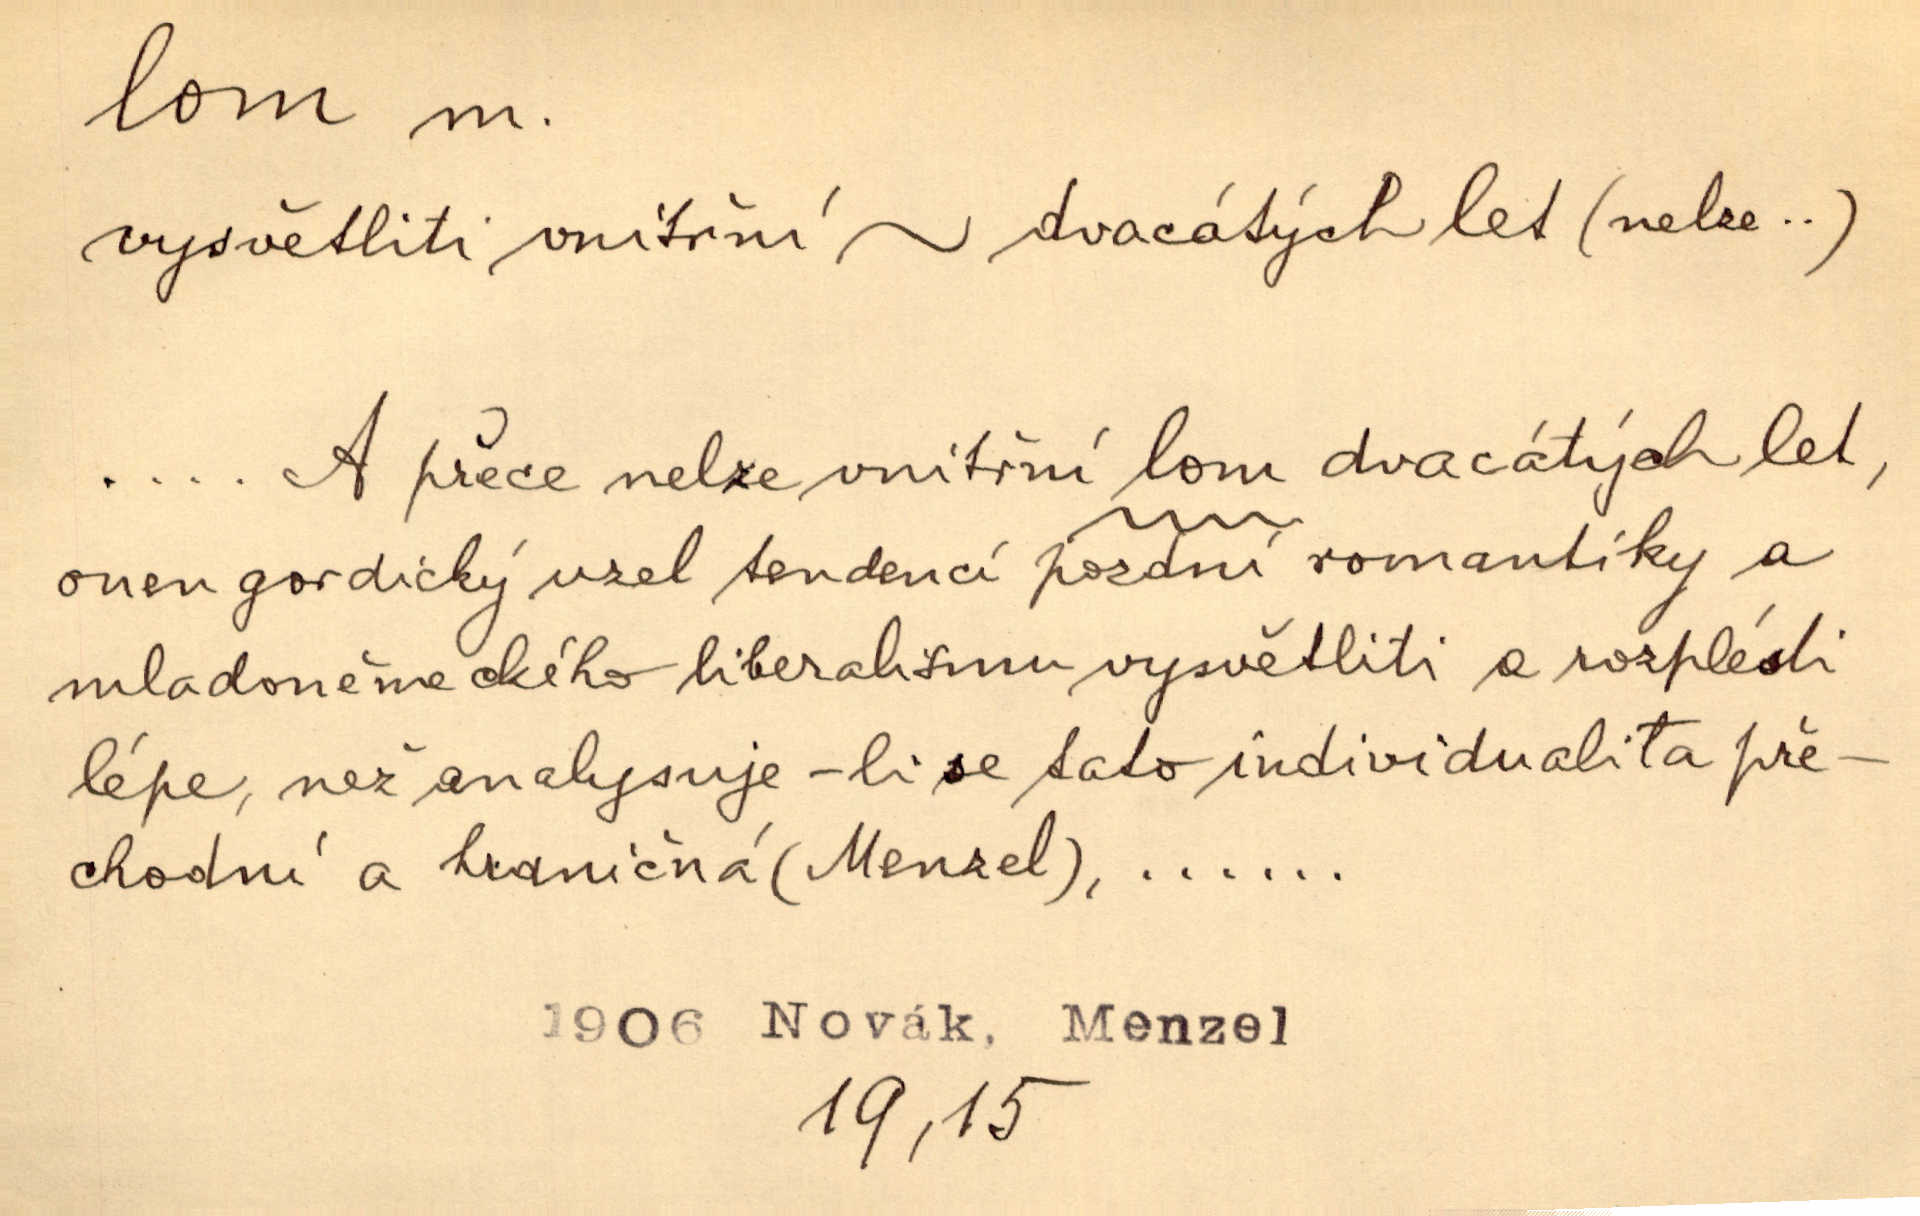 lom m.
vysvětliti vnitřní ~ dvacátých let (nelze..)
..... A přece nelze vnitřní lom dvacátých let,
onen gordický uzel tendencí pozdní romantiky a
mladoněmeckého liberalismu vysvětliti a rozplésti
lépe, než analysuje-li se tato individualita pře-
chodní a hraničná (Menzel), ......
1906 Novák, Menzel
19,15